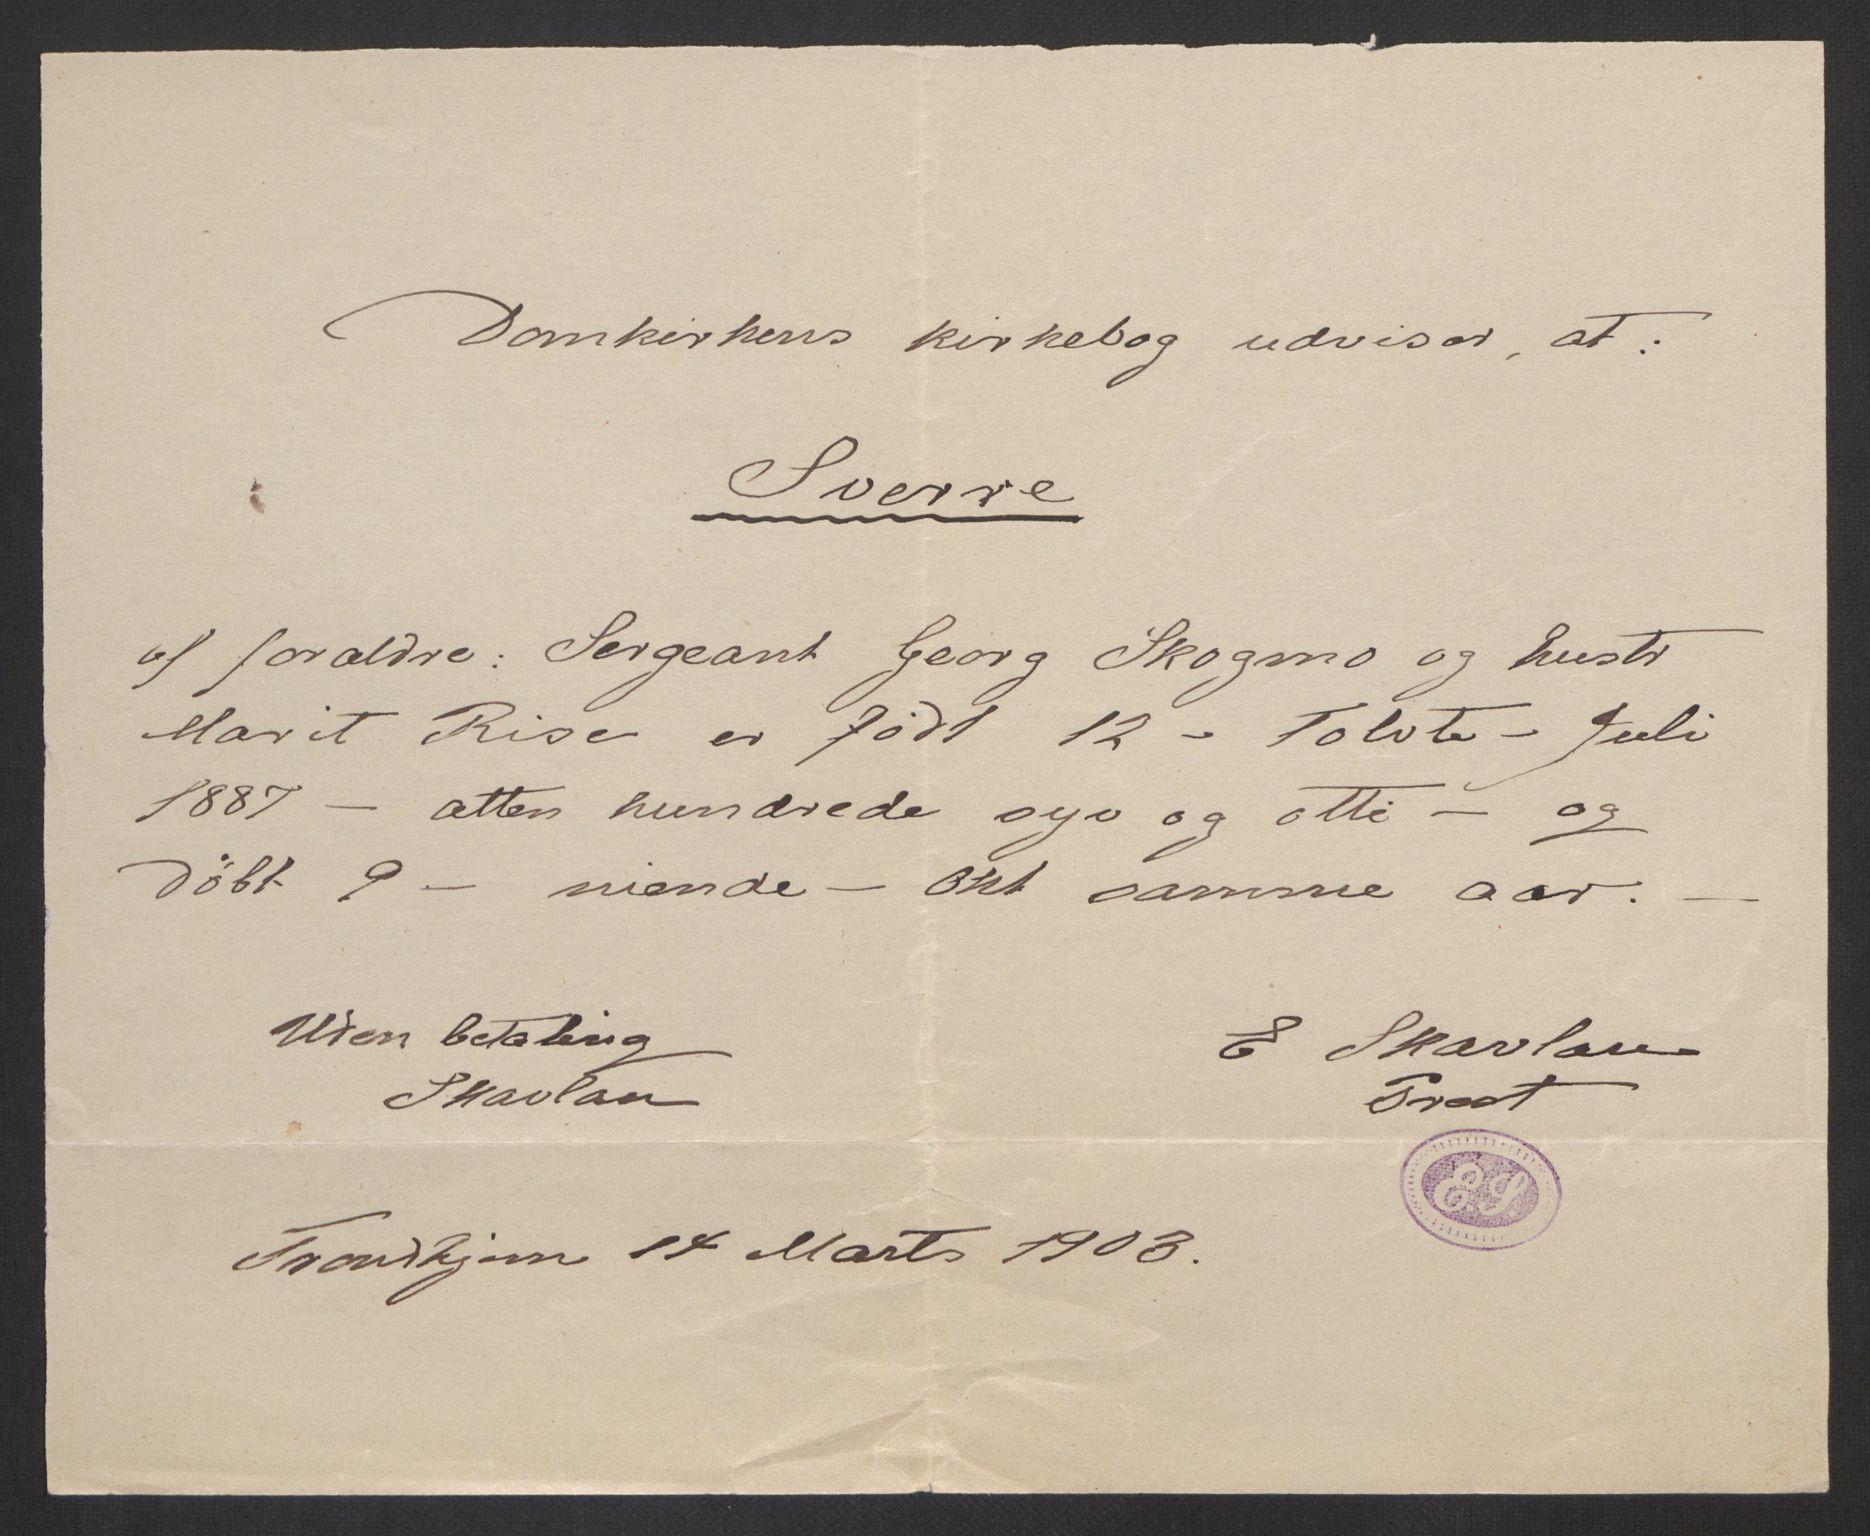 Domkirkens kirkebog udviser, at:
Sverre
af forældre: Sergeant Georg Skogmo og hustr
Marit Rise er födt 12 - Tolvte - Juli
1887 - atten hundrede syv og otti - og
döbt 9 - niende - Okt samme aar. -
Uden betaling
Skavlan
E Skavlan
Prost
E.S
Trondhjem 14 Marts 1903.